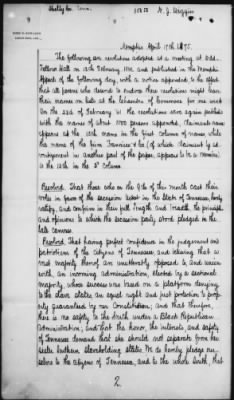 Shelby Co. Tenn.
Memphis April 17th 1875.
The following are resolutions adopted at a meeting at Odd-
Fellows Hall on 12th February 1861 and published in the Memphis
Appeal of the following day, with a notice appended to the effect
that all persons who desired to endorse these resolutions might leave
their names on lists at the
On the 22d of February
with the names of about 1500 persons appended, Claimants name
appears as the 15th name in the first column of names, while
the name of the firm
in another part of the paper, appears to
is the 12th in the 5th column.
Resolved. That those who on the 9th of this month cast their
votes in favor of the secession ticket in the State of Tennessee, hereby
ratify, and confirm in their full length and breadth the principles
and opinions to which the secession party stood pledged in the
late canvass.
Resolved. That having perfect confidence in the judgement and
patriotism of the citizens of Tennessee, and believing that a
vast majority thereof, are unalterably opposed to and union
with, an incoming administration, elected by a sectional
majority, whose success was based on a platform denying
to the slave states an equal right and just protection to prop-
erty guaranteed by our Constitution; and that therefore,
there is no safety to the South under a Black Republican
Administration; and that the honor, the interests and safety
of Tennessee demand that she should end separate from her
sister Southern Slaveholding States. We do hereby pledge our-
selves to the citizens of Tennessee, and to the whole South, that
2